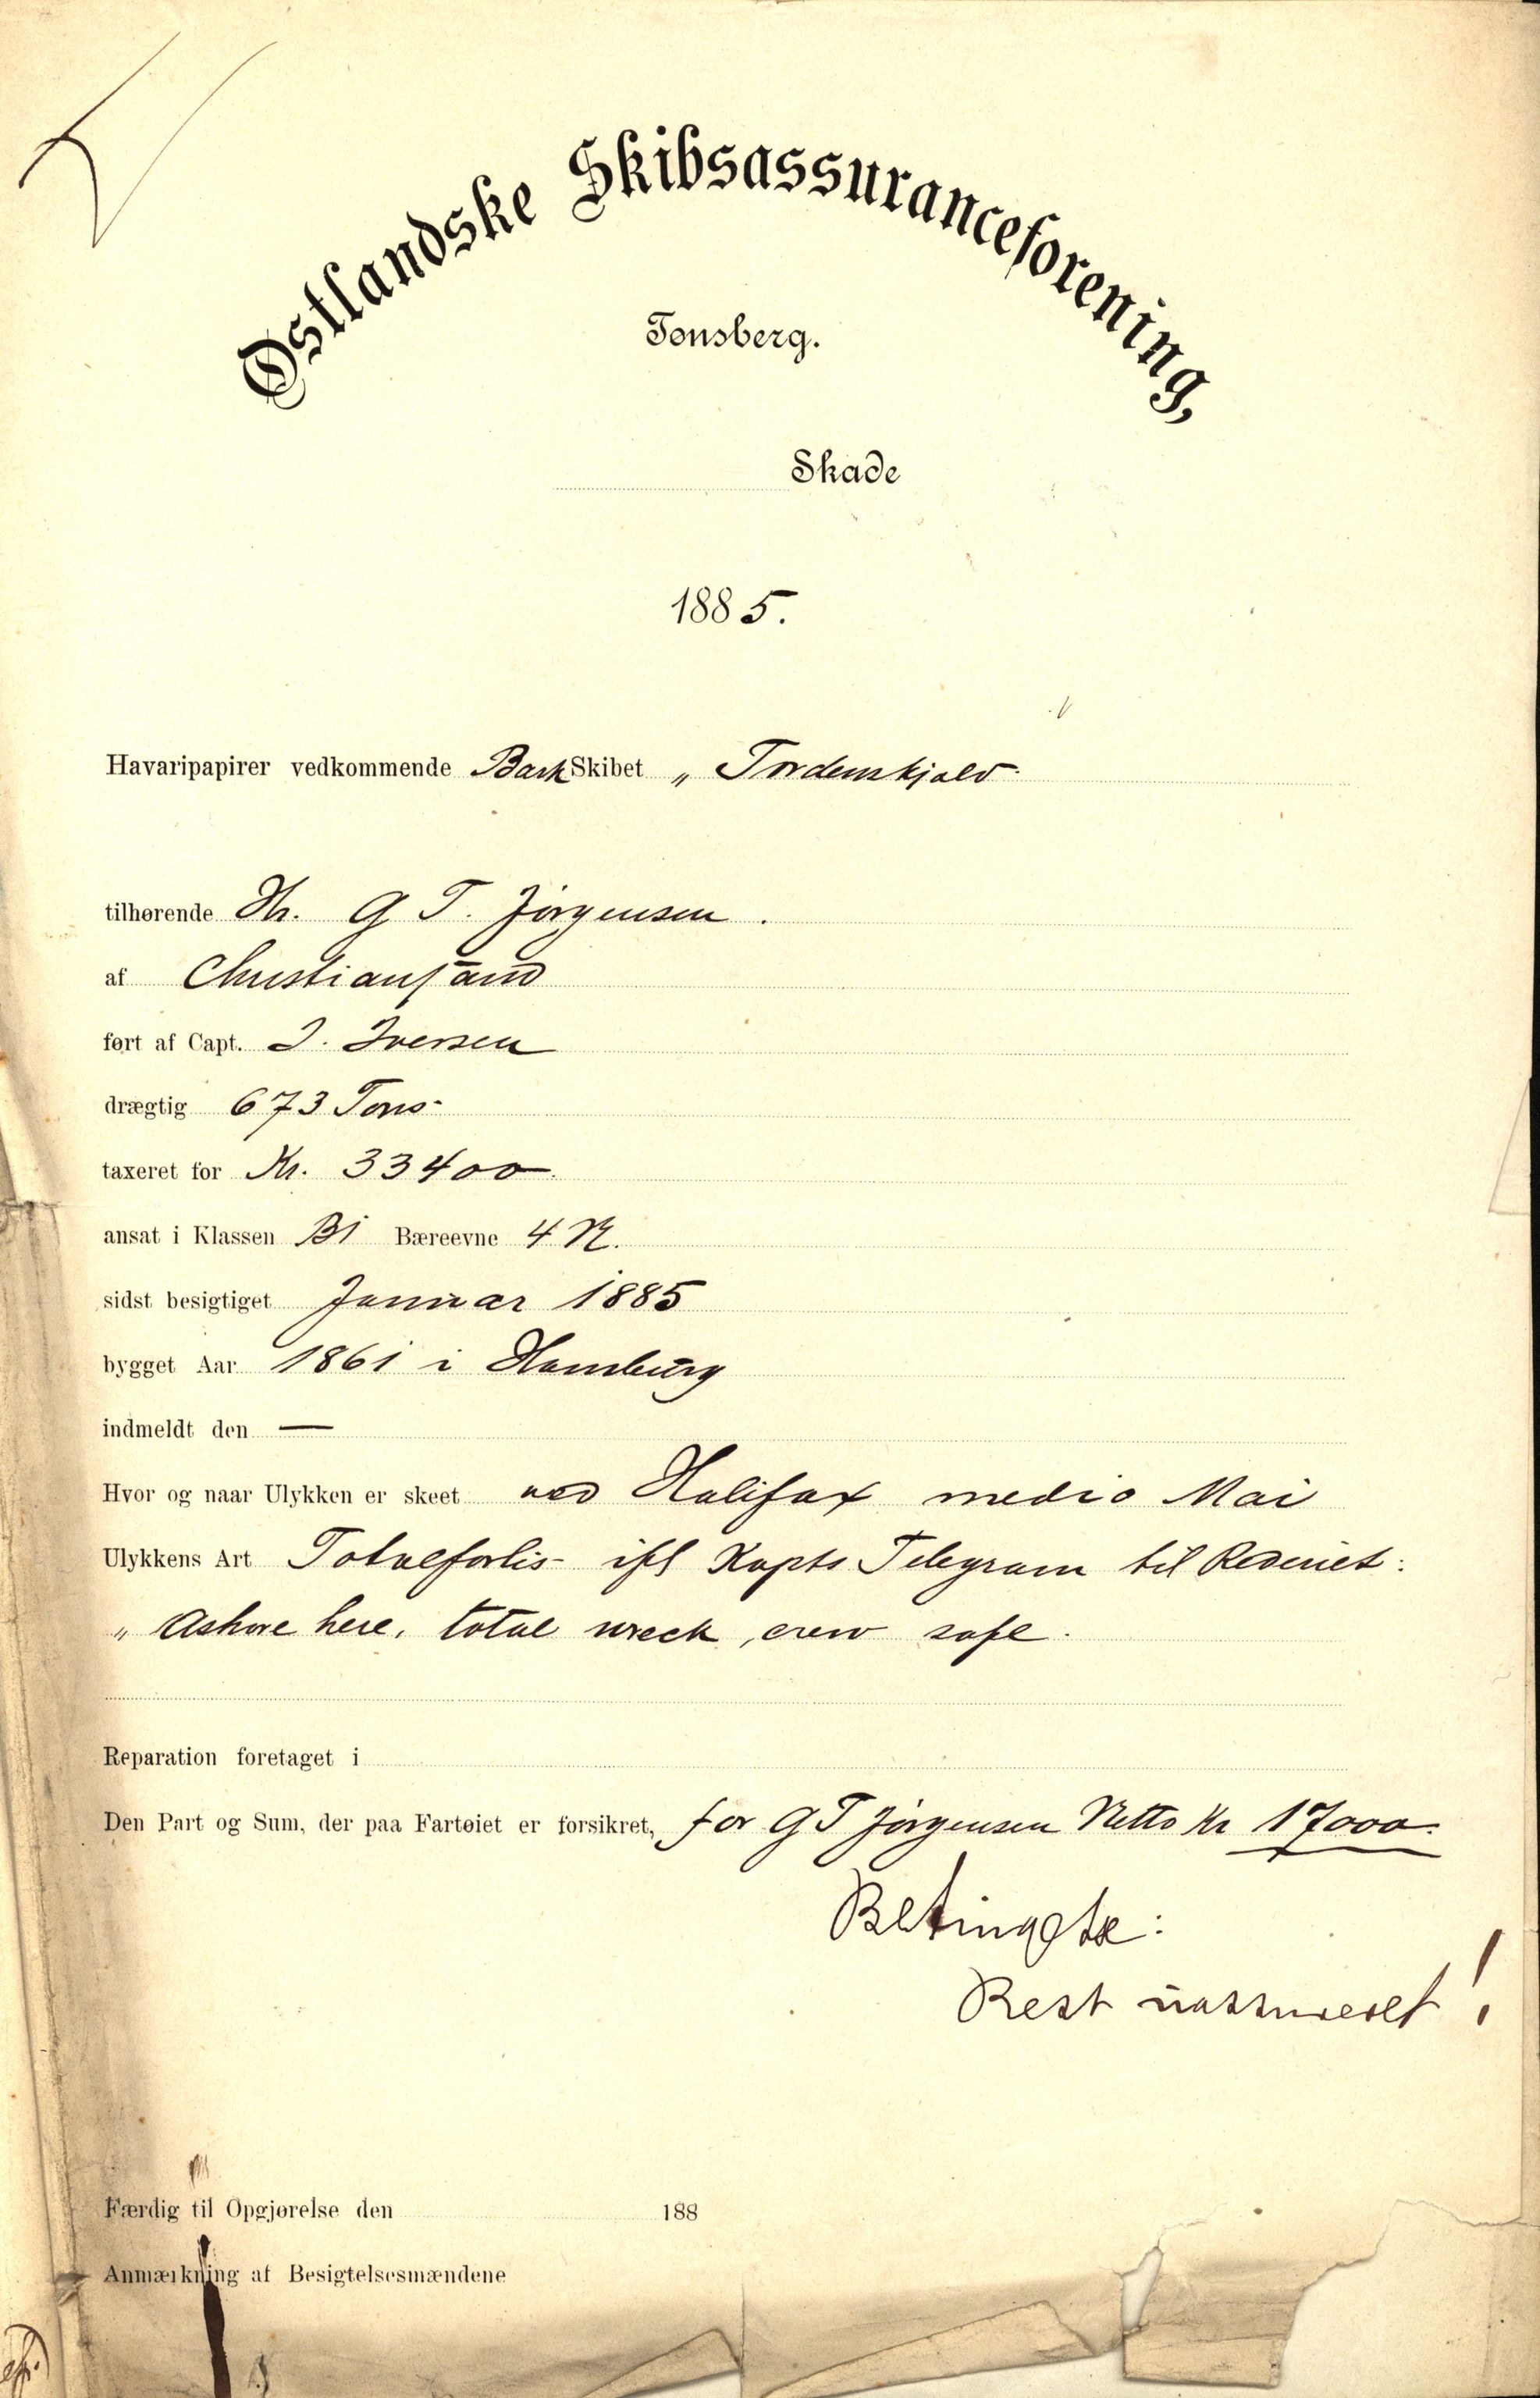 Østlandske Skibsassuranceforening,
Tønsberg.
Skade
1885.
Havaripapirer vedkommende Bark Skibet „ Tordenskjold
tilhørende Hr. G T. Jörgensen.
af Christiansand
ført af Capt. J. Iversen
drægtig 673 Tons
taxeret for Kr. 33400
ansat i Klassen B1 Bæreevne 4
sidst besigtiget Januar 1885
bygget Aar 1861 i Hamburg
indmeldt den —
Hvor og naar Ulykken er skeet ved Halifax medio Mai
Ulykkens Art Totalforlis ifl Kapts Telegram til Rederiet:
„ Ashore here, total wreck, crew safe.
Reparation foretaget i
Den Part og Sum, der paa Fartøiet er forsikret, for G T Jörgensen Netto Kr 17000
Betingelse:
Rest uassureret!
Færdig til Opgjørelse den 188
Anmærkning af Besigtelsesmændene